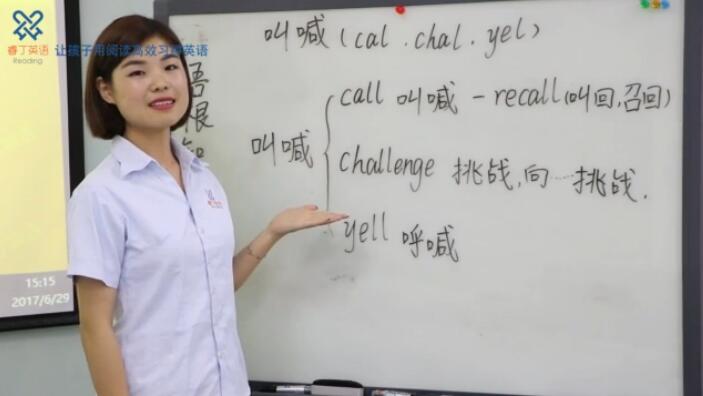 睿丁英语 让孩子用阅读高效习得英语
Reading
叫喊(cal . chal . yel)
语根
叫喊
call 叫喊 - recall(叫回,召回)
challenge 挑战,向…挑战.
yell 呼喊
15:15
2017/6/29